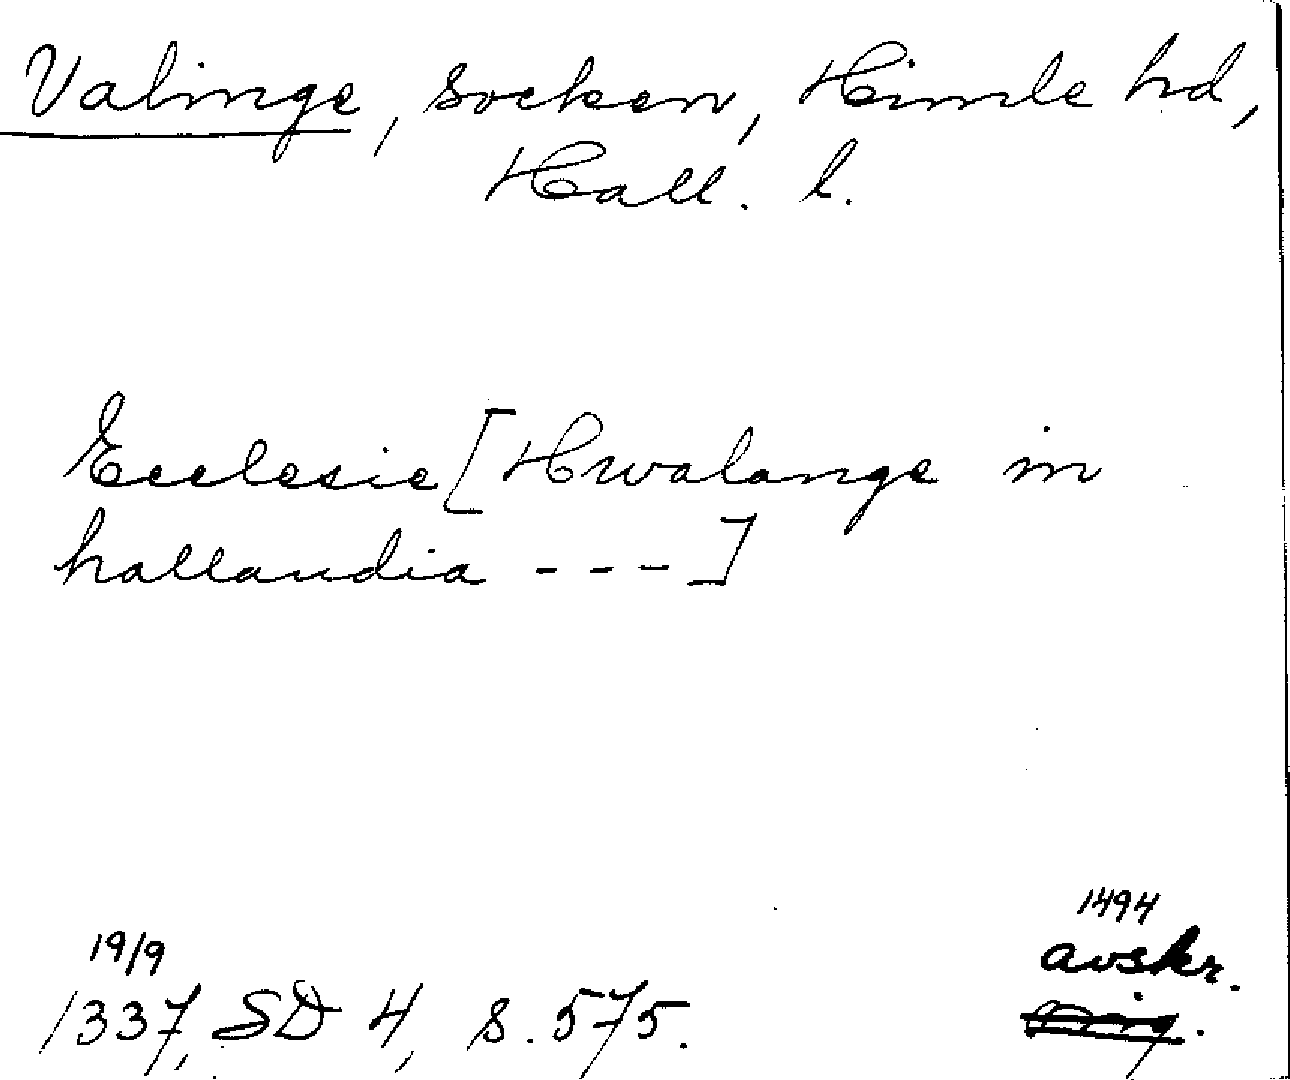 Valinge, socken, Himle hd,
Hall. l.
Ecclesie [Hwalange in
hallandia - - - ]
19/9
1337, SD 4, s. 575.
1494
avskr.
orig.